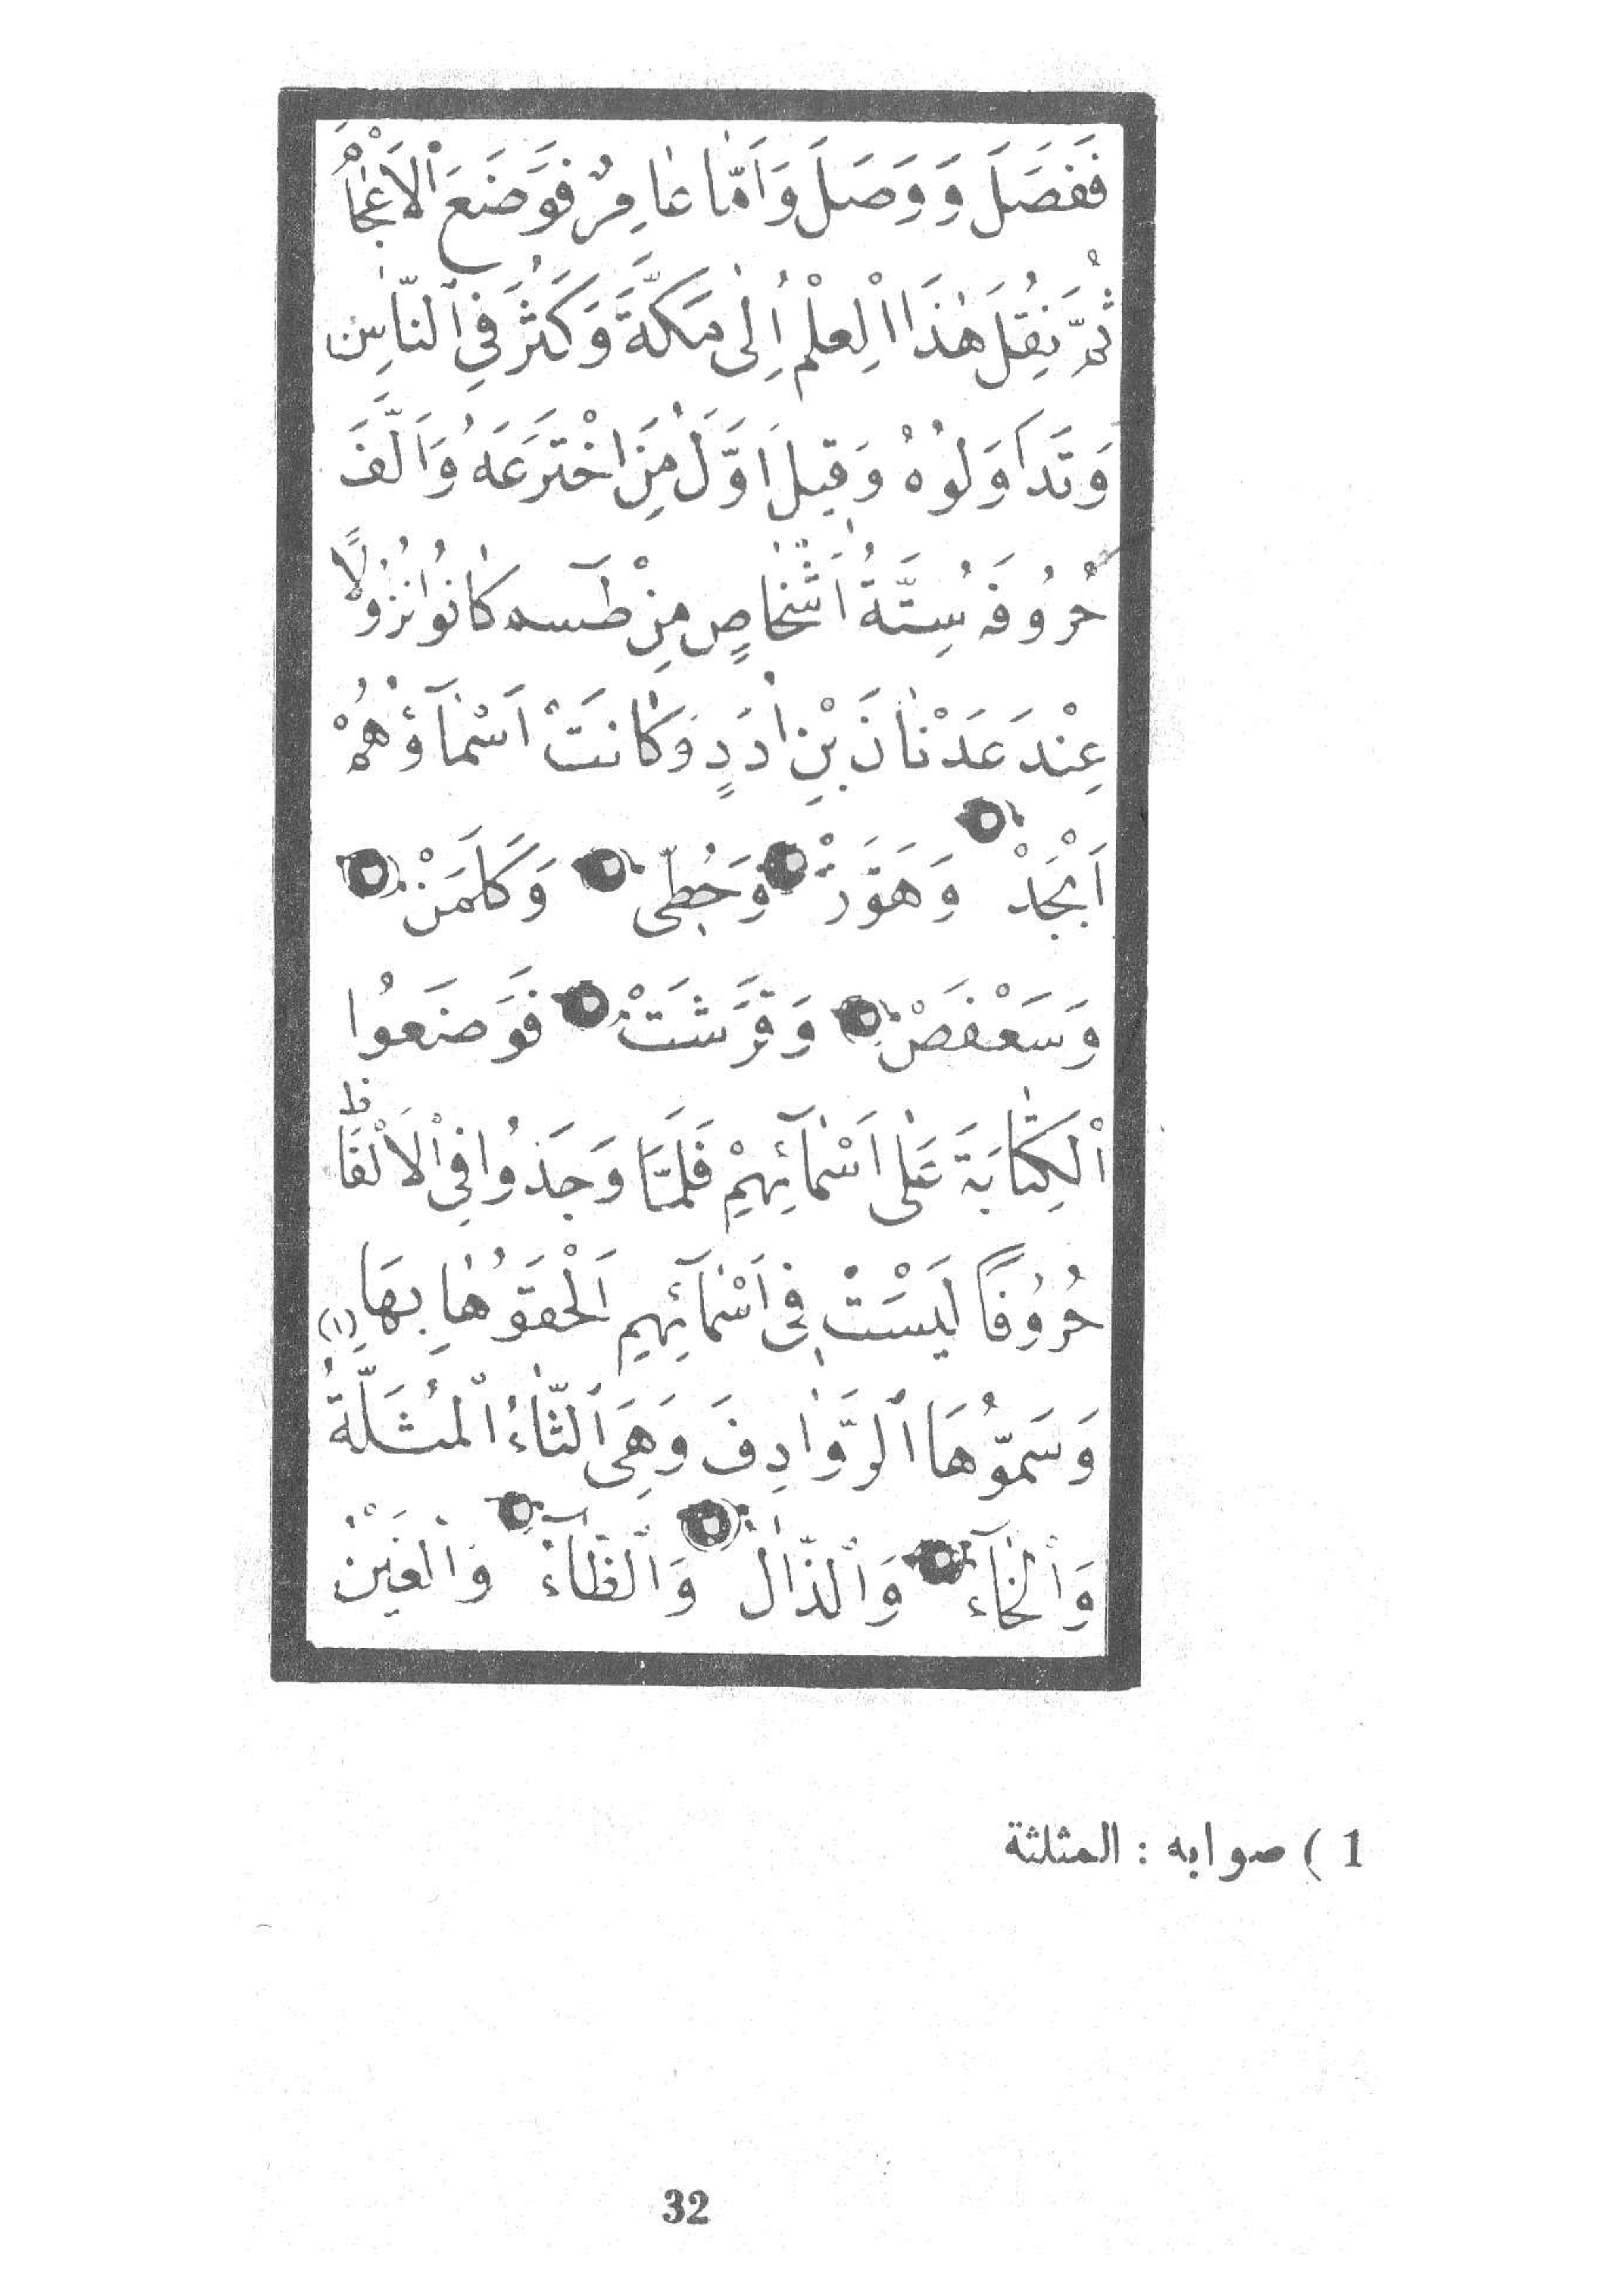 فَفَصَلَ وَوَصَلَ وَاَمَّا عَامِرٌ فَوَضَعَ الْاَعْجَامَ
ثُمَّ نُقِلَ هٰذَا الْعِلْمُ اِلٰى مَكَّةَ وَكَثُرَ فِي النَّاسِ
وَتَدَاوَلُوْهُ وَقِيلَ اَوَّلُ مَنِ اخْتَرَعَهُ وَاَلَّفَ
حُرُوُفَهُ سِتَّةُ اَشْخَاصٍ مِنْ طَسم كَانُوْا نُزُولًا
عِنْدَ عَدْنَانَ بْنِ اُدَدٍ وَكَانَتْ اَسْمَآؤُهُمْ
اَبْجَدْ وَهَوَّزْ وَحُطِّى وَكَلَمَنْ
وَسَعْفَصْ وَقَرَّشَتْ فَوَضَعُوا
الْكِتَابَةَ عَلٰى اَسْمَآئِهِمْ فَلَمَّا وَجَدُوا فِي الْاَلْفَاظِ
حُرُوُفًا لَيْسَتْ فِى اَسْمَآئِهِمِ اَلْحَقَوُهَا بِهَا (١)
وَسَمَّوُهَا الرَّوَادِفَ وَهِىَ الثَّاءُ الْمُثَلَّةُ
وَالْخَآءُ وَالذَّالُ وَالظَّآءُ وَالْغَيْنُ
1 ) صوابه : المثلثة
32